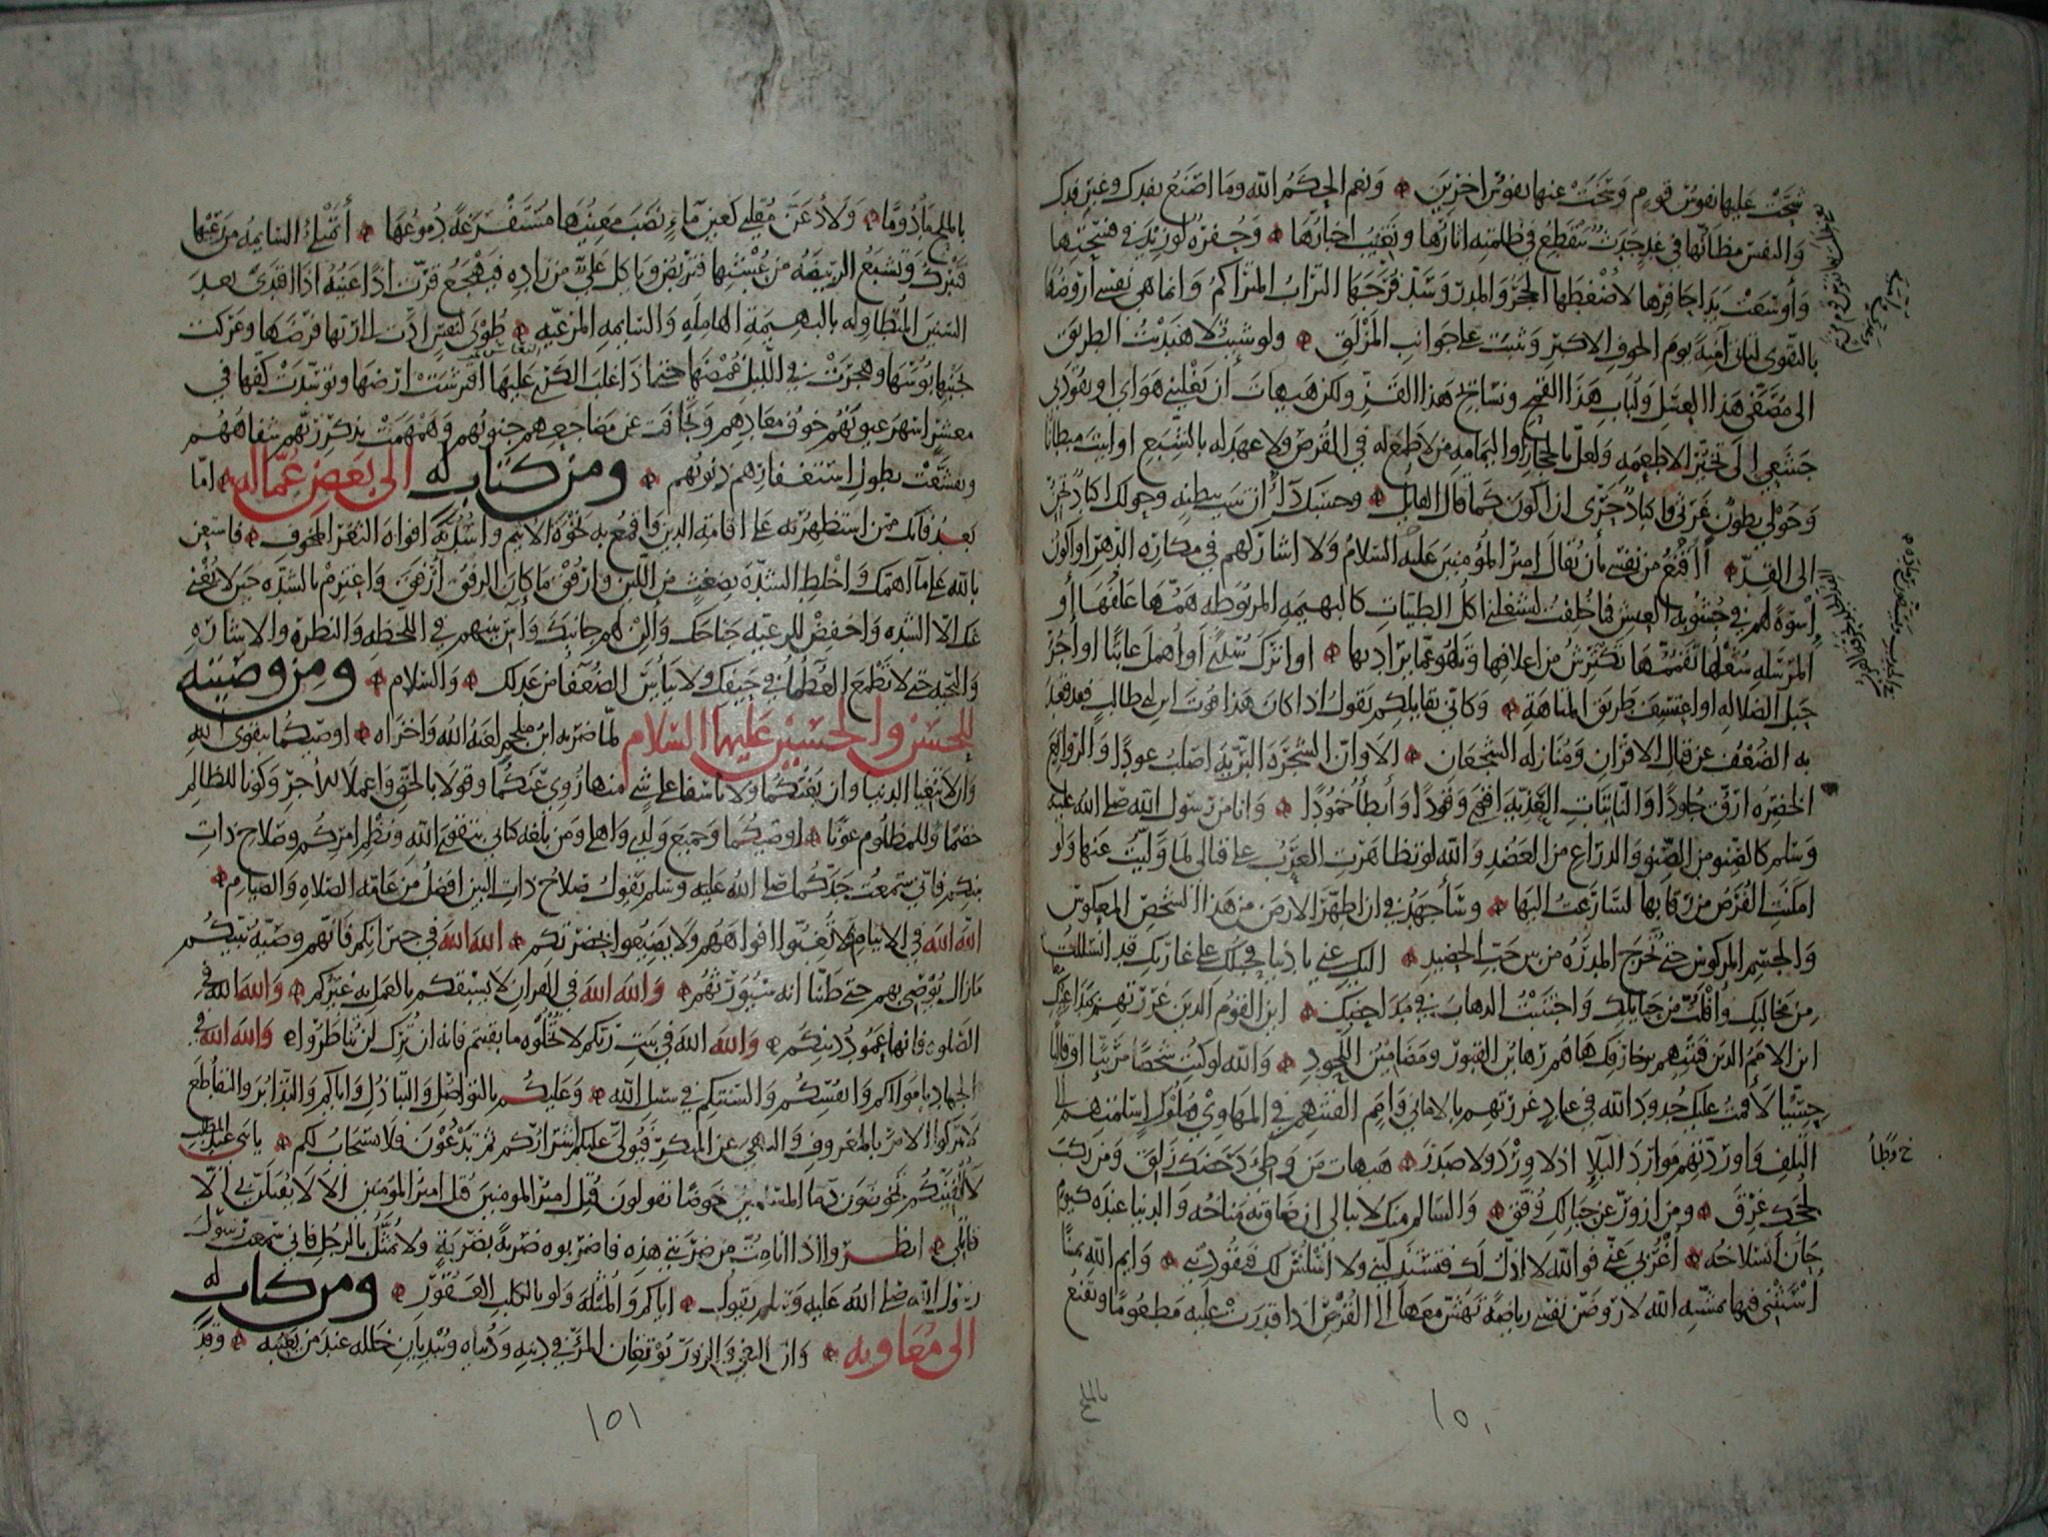 شحّت عليها نفوس قوم وسخت عنها نفوس اخرين ونعم الحكم الله وما اصنع بفدك وغير فدك
والنفس مظانّها في غد جدث تنقطع في ظلمته اثارها وتغيب اخبارها وحفرة لو زيد في فسحتها
وأوسعت يدا حافرها لاضغطها الحجر والمدر وسدّ فرجها التراب المتراكم وانما هي نفسي أروضها
بالتقوى لتاتي آمنة يوم الخوف الاكبر وتثبت على جوانب المزلق ولو شئت لاهتديت الطريق
الى مصفّى هذا العسل ولباب هذا القمح ونسائج هذا القز ولكن هيهات أن يغلبني هواي او يقودني
جشعي الى تخيّر الاطعمة ولعل بالحجاز او اليمامة من لا طمع له في القرص ولا عهد له بالشبع او ابيت مبطانا
وحولي بطون غرثى واكباد حرّى او اكون كما قال القائل وحسبك داءً أن تبيت ببطنة وحولك اكباد تحنّ
الى القدّ أأقنع من نفسي بأن يقال امير المؤمنين عليه السلام ولا اشاركهم في مكاره الدهر او اكون
أسوة لهم في جشوبة العيش فما خلقت ليشغلني اكل الطيبات كالبهيمة المربوطة همّها علفها أو
المرسلة شغلها تقمّمها تكترش من اعلافها وتلهو عما يراد بها او اترك سدًى او اهمل عابثا او اجرّ
حبل الضلالة او اعتسف طريق المتاهة وكاني بقايلكم يقول اذا كان هذا قوت ابن ابي طالب فقد قعد
به الضعف عن قتال الاقران ومنازلة الشجعان الا وان الشجرة البرّية اصلب عودًا والروايع
الخضرة ارقّ جلودًا والنابتات العذية اقوى وقودًا وأبطأ خمودًا وانا من رسول الله صلى الله عليه
وسلم كالصنو من الصنو والذراع من العضد والله لو تظاهرت العرب على قتالي لما ولّيت عنها ولو
امكنت الفرص من رقابها لسارعت اليها وسأجهد في ان اطهّر الارض من هذا الشخص المعكوس
والجسم المركوس حتى تخرج المدرة من بين حبّ الحصيد اليك عني يا دنيا فحبلك على غاربك قد انسللت
من مخالبك وأفلتّ من حبايلك واجتنبت الذهاب في مداحضك اين القوم الذين غررتهم بمداعبك
اين الامم الذين فتنتهم بزخارفك ها هم رهاين القبور ومضامين اللحود والله لو كنت شخصًا مرئيّا او قالبًا
حسّيّا لأقمت عليك حدود الله في عباد غررتهم بالاماني وامم القيتهم في المهاوي وملوك اسلمتهم الى
التلف وأوردتهم موارد البلاء اذ لا ورد ولا صدر هيهات من وطئ دحضك زلق ومن ركب
لججك غرق ومن ازورّ عن حبالك وفّق والسالم منك لا يبالي ان ضاق به مناخه والدنيا عنده كيوم
حان انسلاخه أعزبي عني فوالله لا اذلّ لك فتستذلّيني ولا اسلس لك فتقوديني وايم الله يمينًا
أستثني فيها بمشيّة الله لاروضنّ نفسي رياضة تهشّ معها الى القرص اذا قدرت عليه مطعومًا وتقنع
خ وطأ
بالملح
١٥٠
بالملح مأدومًا ولأدعنّ مقلتي كعين ماء نضب معينها مستفرغة دموعها أتمتلئ السايمة من رعيها
فتبرك وتشبع الربيضة من عشبها فتربض وياكل علي من زاده فيهجع قرّت اذًا عينه اذا اقتدى بعد
السنين المتطاولة بالبهيمة الهاملة والسايمة المرعيّة طوبى لنفس ادّت الى ربها فرضها وعركت
بجنبها بؤسها وهجرت في الليل غمضها حتى اذا غلب الكرى عليها افترشت ارضها وتوسّدت كفّها في
معشر اسهر عيونهم خوف معادهم وتجافت عن مضاجعهم جنوبهم وهمهمت بذكر ربهم شفاههم
وتقشّعت بطول استغفارهم ذنوبهم ومن كتاب له الى بعض عمّاله امّا
بعد فانك ممن استظهر به على اقامة الدين واقمع به نخوة الاثيم واسدّ به افواه الثغر المخوف فاستعن
بالله على ما اهمّك واخلط الشدّة بضغث من اللين وارفق ما كان الرفق ارفق واعتزم بالشدة حين لا يغني
عنك الّا الشدة واخفض للرعية جناحك وألن لهم جانبك وآس بينهم في اللحظة والنظرة والاشارة
والتحية حتى لا تطمع العظماء في حيفك ولا يايس الضعفا من عدلك والسلام ومن وصيته
للحسن والحسين عليهما السلام لمّا ضربه ابن ملجم لعنه الله واخزاه اوصيكما بتقوى الله
وأن لا تبغيا الدنيا وان بغتكما ولا تاسفا على شي منها زوي عنكما وقولا بالحق واعملا للأجر وكونا للظالم
خصمًا وللمظلوم عونًا اوصيكما وجميع ولدي واهلي ومن بلغه كتابي بتقوى الله ونظم امركم وصلاح ذات
بينكم فاني سمعت جدّكما صلى الله عليه وسلم يقول صلاح ذات البين افضل من عامة الصلاة والصيام
الله الله في الايتام فلا تغبّوا افواههم ولا يضيعوا بحضرتكم الله الله في جيرانكم فانهم وصيّة نبيكم
مازال يوصي بهم حتى ظننا انه سيورّثهم والله الله في القران لا يسبقكم بالعمل به غيركم والله الله في
الصلوة فانها عمود دينكم والله الله في بيت ربكم لا تخلّوه ما بقيتم فانه ان ترك لن تناظروا والله الله في
الجهاد باموالكم وانفسكم والسنتكم في سبيل الله وعليكم بالتواصل والتباذل واياكم والتدابر والتقاطع
لا تتركوا الامر بالمعروف والنهي عن المنكر فيولّى عليكم اشراركم ثم تدعون فلا يستجاب لكم يا بني عبد المطلب
لا ألفينّكم تخوضون دماء المسلمين خوضًا تقولون قتل امير المومنين قتل امير المومنين ألا لا يقتلن بي الّا
قاتلي انظروا اذا انا متّ من ضربته هذه فاضربوه ضربة بضربة ولا يمثّل بالرجل فاني سمعت رسول
رسول الله صلى الله عليه وسلم يقول اياكم والمثلة ولو بالكلب العقور ومن كتاب له
الى معاوية وان البغي والزور يوتغان المرء في دينه ودنياه ويبديان خلله عند من يعيبه وقد
١٥١